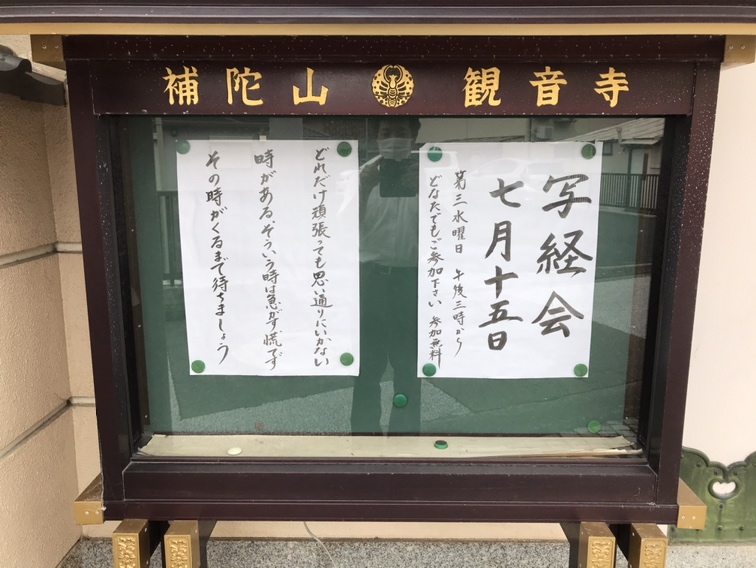 補陀山 観音寺
写経会
七月十五日
第三水曜日 午後三時から
どなたでもご参加下さい 参加無料
どれだけ頑張っても思い通りにいかない
時がある、そういう時は急がず、慌てず
その時がくるまで待ちましょう